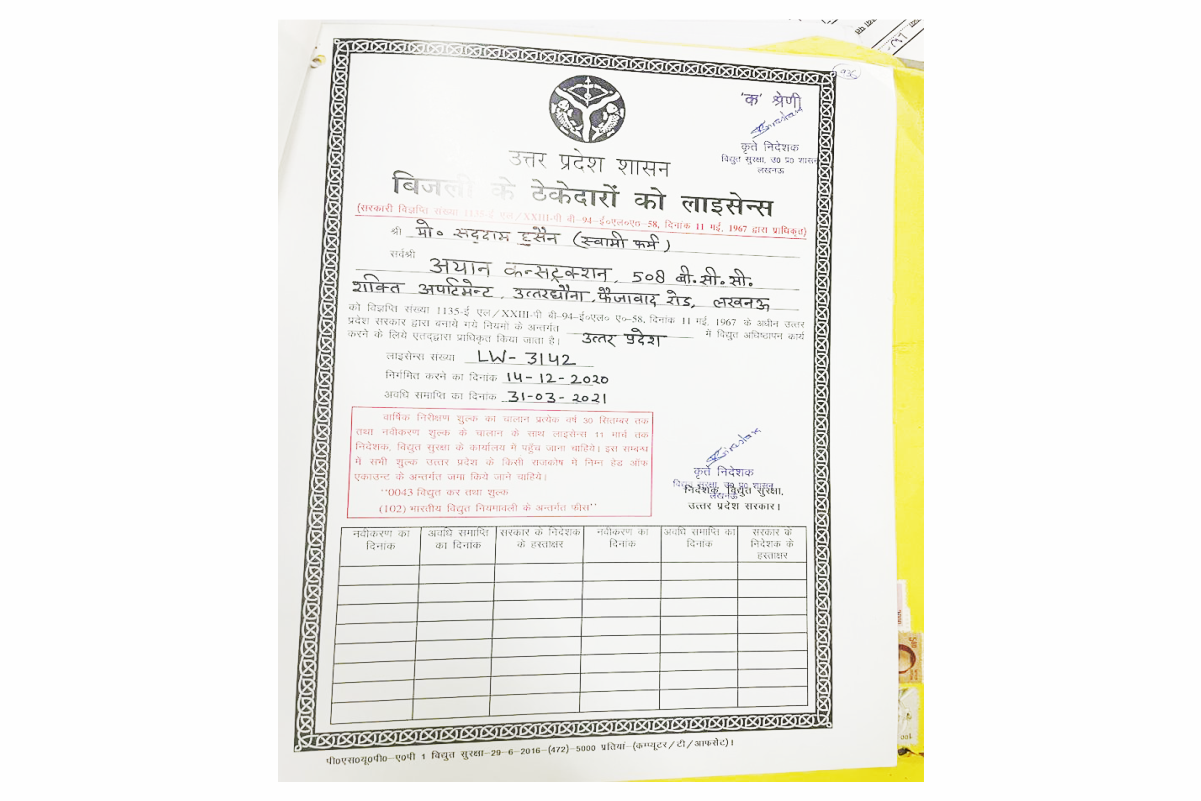 'क' श्रेणी
कृते निदेशक
विद्युत सुरक्षा, उ0 प्र0 शासन
लखनऊ
उत्तर प्रदेश शासन
बिजली के ठेकेदारों को लाइसेन्स
(सरकारी विज्ञप्ति संख्या 1135-ई एल/XXIII-पी बी-94-ई०एल०ए०-58, दिनांक 11 मई, 1967 द्वारा प्राधिकृत)
श्री मो० सद्दाम हुसैन (स्वामी फर्म)
सर्वश्री अयान कन्सट्रक्शन, 508 बी.सी.सी.
शक्ति अर्पाटमेन्ट, उत्तरधौना, फैजाबाद रोड, लखनऊ
को विज्ञप्ति संख्या 1135-ई एल/XXIII-पी बी-94-ई०एल० ए०-58, दिनांक 11 मई, 1967 के अधीन उत्तर
प्रदेश सरकार द्वारा बनाये गये नियमों के अन्तर्गत उत्तर प्रदेश में विद्युत अधिष्ठापन कार्य
करने के लिये एतद्द्वारा प्राधिकृत किया जाता है।
लाइसेन्स संख्या LW-3142
निर्गमित करने का दिनांक 14-12-2020
अवधि समाप्ति का दिनांक 31-03-2021
वार्षिक निरीक्षण शुल्क का चालान प्रत्येक वर्ष 30 सितम्बर तक
तथा नवीकरण शुल्क के चालान के साथ लाइसेन्स 11 मार्च तक
निदेशक, विद्युत सुरक्षा के कार्यालय में पहुँच जाना चाहिये। इस सम्बन्ध
में सभी शुल्क उत्तर प्रदेश के किसी राजकोष में निम्न हेड ऑफ
एकाउन्ट के अन्तर्गत जमा किये जाने चाहिये।
"0043 विद्युत कर तथा शुल्क
(102) भारतीय विद्युत नियमावली के अन्तर्गत फीस"
कृते निदेशक
विद्युत सुरक्षा, उ0 प्र0 शासन
लखनऊ
निदेशक, विद्युत सुरक्षा,
उत्तर प्रदेश सरकार।
नवीकरण का दिनांक अवधि समाप्ति का दिनांक सरकार के निदेशक के हस्ताक्षर नवीकरण का दिनांक अवधि समाप्ति का दिनांक सरकार के निदेशक के हस्ताक्षर
पी0एस0यू0पी0-ए0पी 1 विद्युत सुरक्षा-29-6-2016-(472)-5000 प्रतियां-(कम्प्यूटर/टी/आफसेट)।